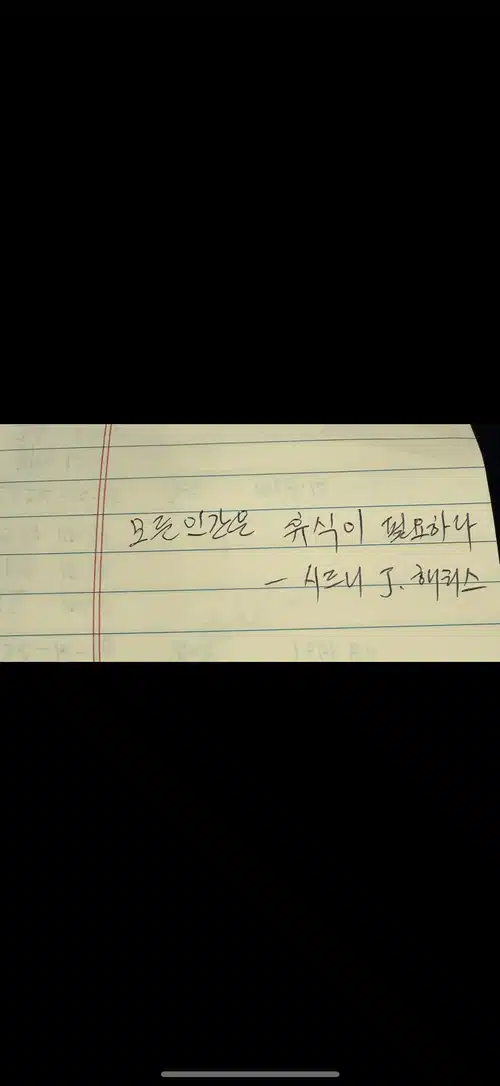 모든 인간은 휴식이 필요하다
- 시드니 J. 해리스